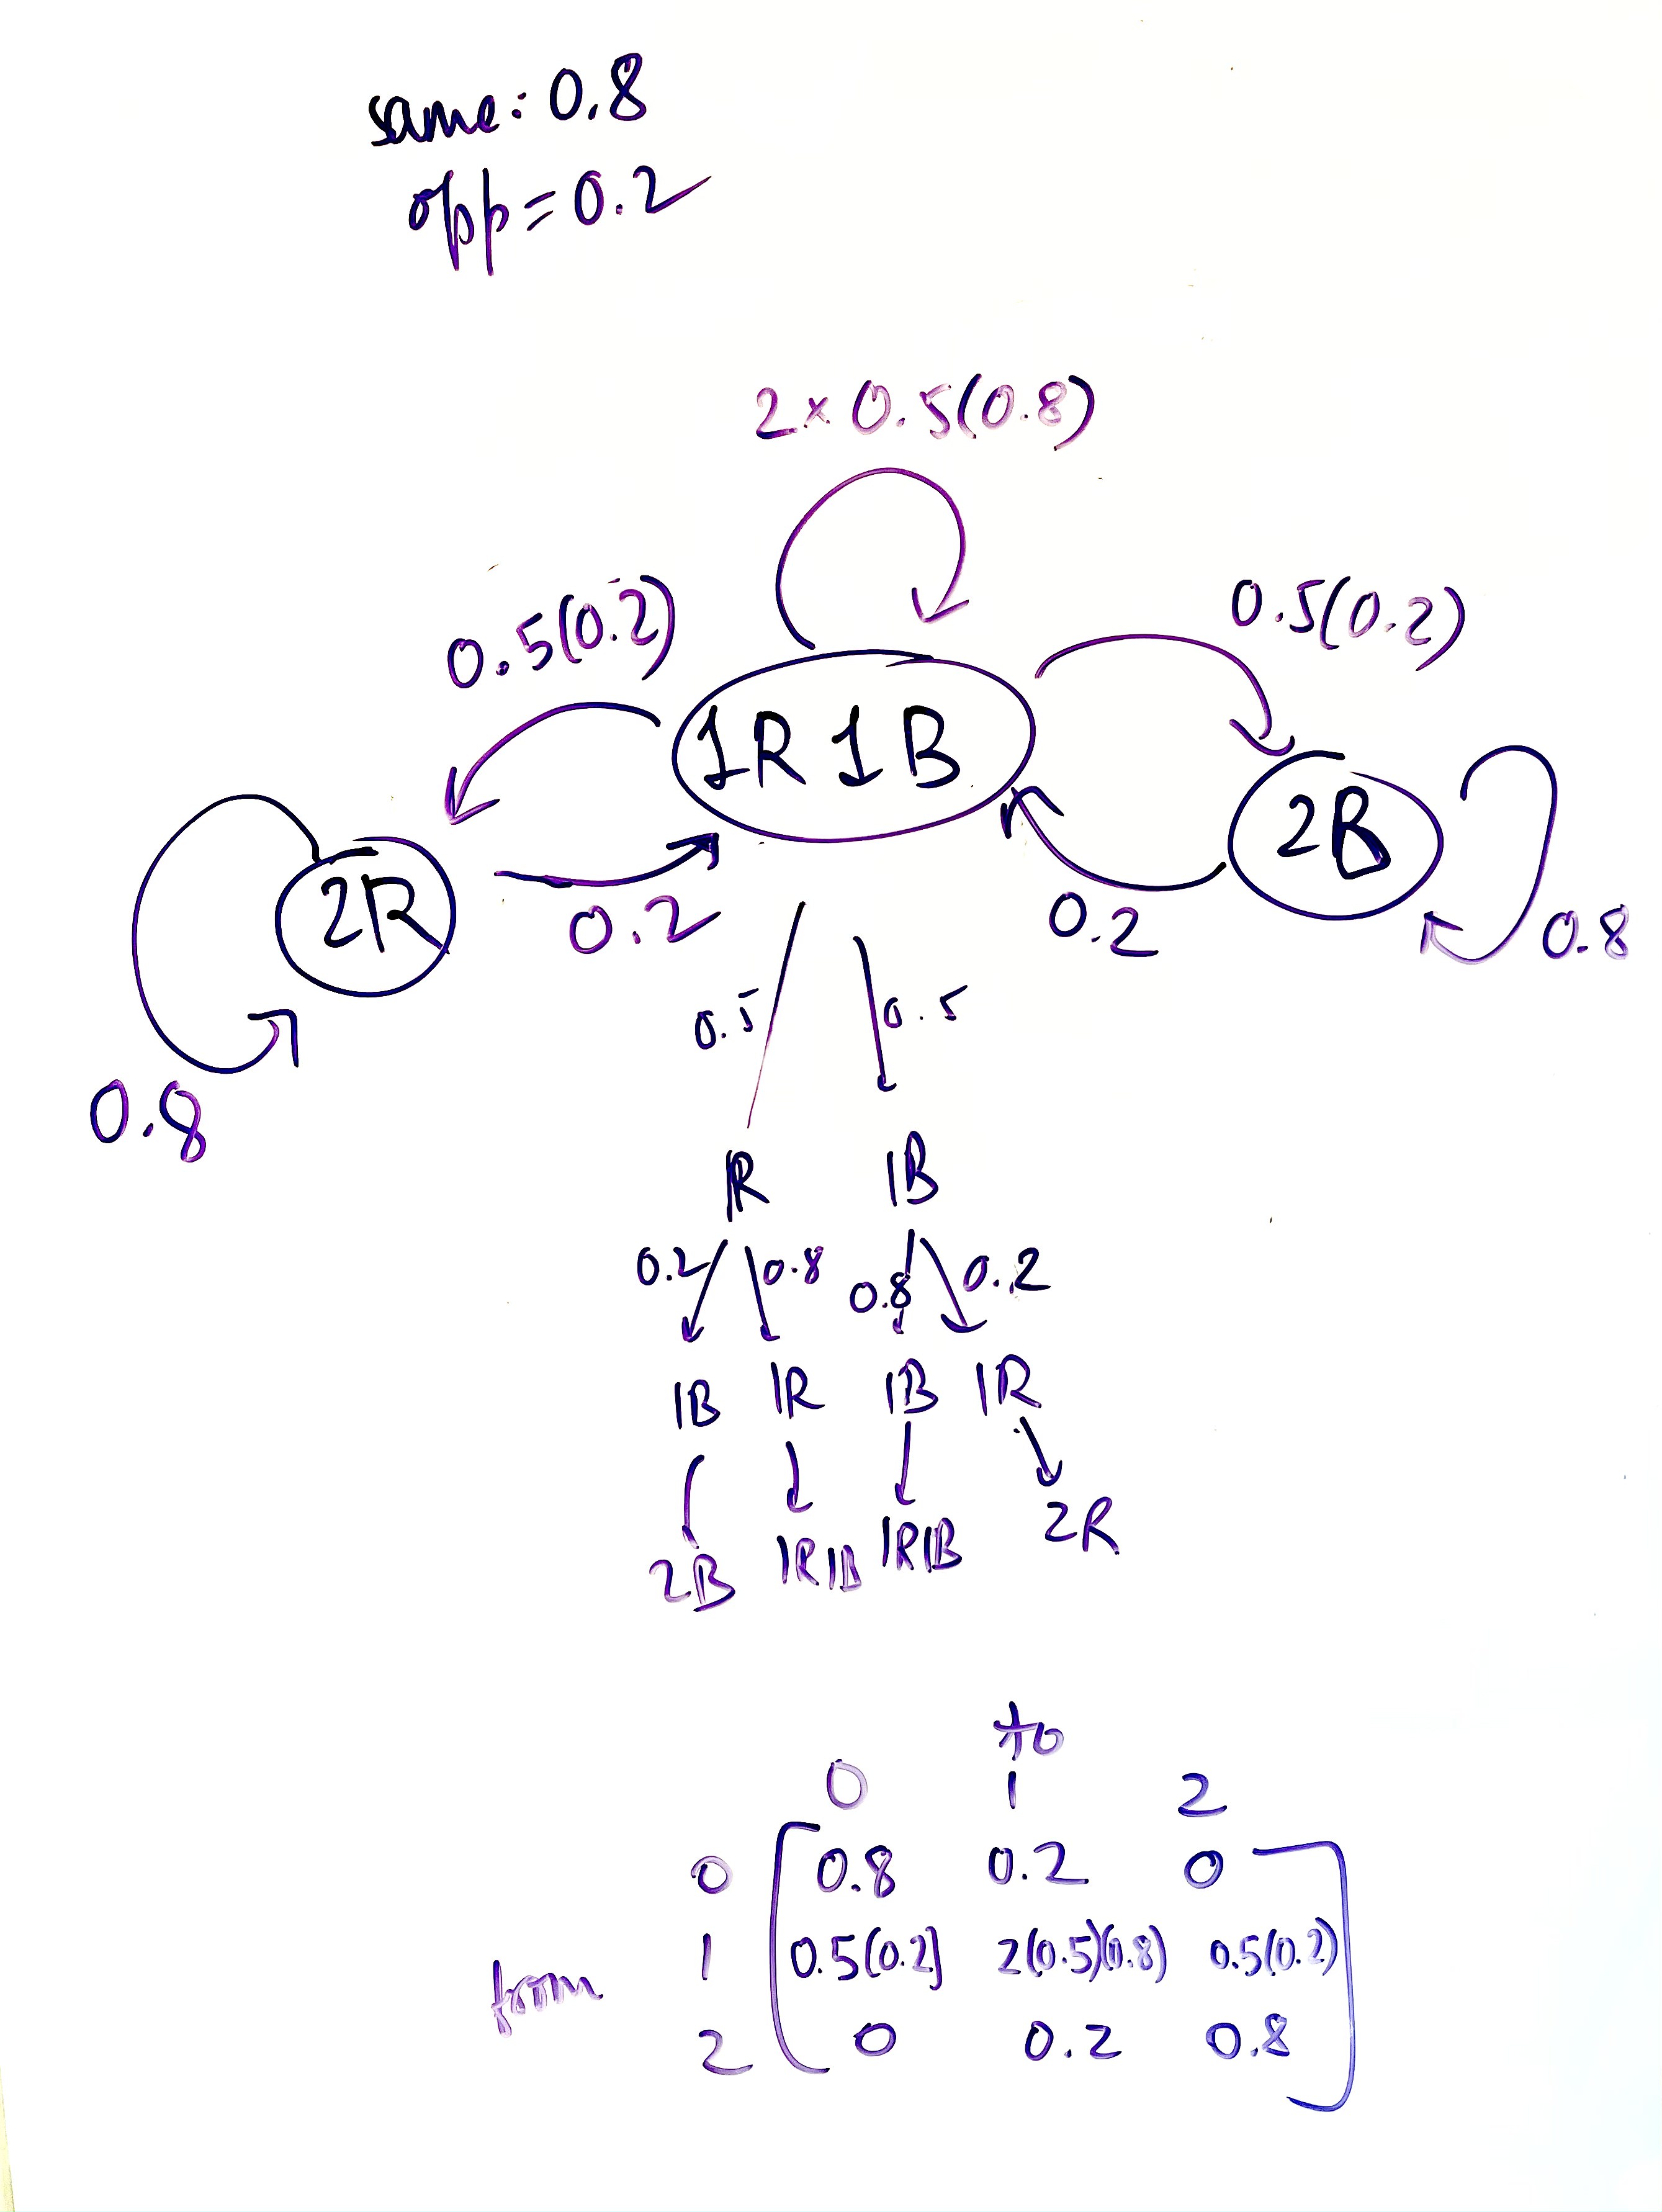 same: 0.8
opp = 0.2
2 x 0.5(0.8)
0.5(0.2)
0.5(0.2)
1R 1B
2B
2R
0.2
0.2
0.8
0.8
0.5
0.5
1R
1B
0.2
0.8
0.8
0.2
1B
1R
1B
1R
2B
1R1B
1R1B
2R
to
0 1 2
0 0.8 0.2 0
1 0.5(0.2) 2(0.5)(0.8) 0.5(0.2)
from
2 0 0.2 0.8